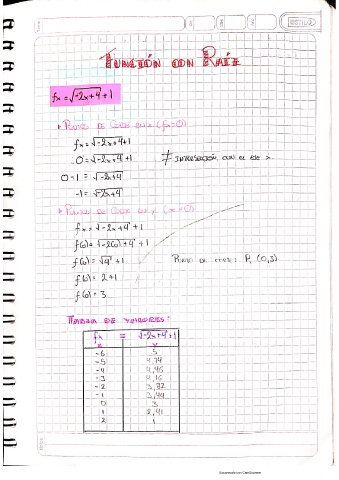 ESTILO
Función con Raíz
fx = √-2x+4 + 1
• Puntos de Corte en x (fx=0)
fx = √-2x+4 + 1
0 = √-2x+4 + 1
≠ Intersección con el eje x.
0-1 = √-2x+4
-1 = √-2x+4
• Puntos de Corte en y (x=0)
fx = √-2x+4 + 1
f(0) = √-2(0)+4 + 1
f(0) = √4 + 1
Punto de corte: P, (0,3)
f(0) = 2+1
f(0) = 3
Tabla de valores:
fx = √-2x+4 + 1
x y
-6 5
-5 4,74
-4 4,46
-3 4,16
-2 3,82
-1 3,44
0 3
1 2,41
2 1